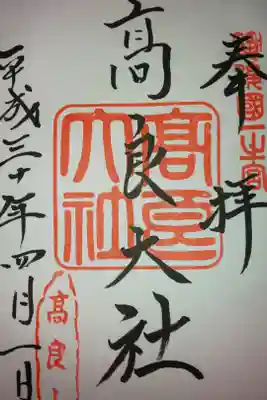 奉拝
筑後國一之宮
髙良大社
髙良大社
平成三十年四月一日
髙良